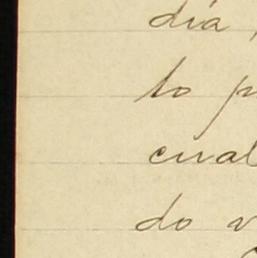 día
to p
cual
do v